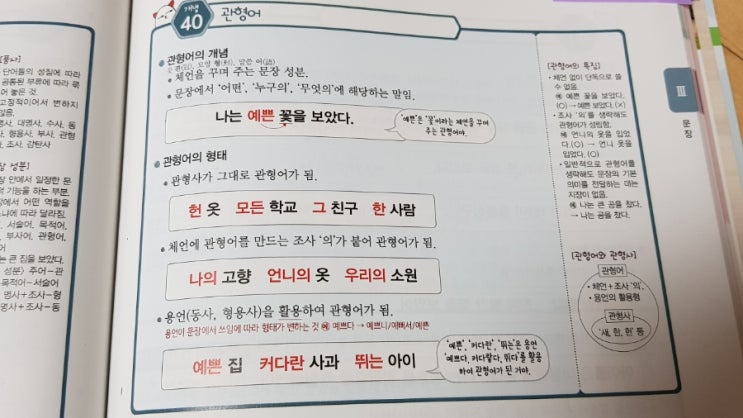 개념
40
관형어
관형어의 개념
체언을 꾸며 주는 문장 성분.
문장에서 '어떤', '누구의', '무엇의'에 해당하는 말임.
나는 예쁜 꽃을 보았다.
'예쁜'은 '꽃'이라는 체언을 꾸며
주는 관형어야.
관형어의 형태
관형사가 그대로 관형어가 됨.
헌 옷 모든 학교 그 친구 한 사람
체언에 관형어를 만드는 조사 '의'가 붙어 관형어가 됨.
나의 고향 언니의 옷 우리의 소원
용언(동사, 형용사)을 활용하여 관형어가 됨.
용언이 문장에서 쓰임에 따라 형태가 변하는 것 예 예쁘다 → 예쁘니/예뻐서/예쁜
예쁜 집 커다란 사과 뛰는 아이
'예쁜', '커다란', '뛰는'은 용언
'예쁘다, 커다랗다, 뛰다'를 활용
하여 관형어가 된 거야.
[관형어의 특징]
• 체언 없이 단독으로 쓸
수 없음.
예 예쁜 꽃을 보았다.
(O) → 예쁜 보았다. (×)
• 조사 '의'를 생략해도
관형어가 성립함.
예 언니의 옷을 입었
다.(O) → 언니 옷을
입었다. (O)
• 일반적으로 관형어를
생략해도 문장의 기본
의미를 전달하는 데는
지장이 없음.
예 나는 큰 공을 찼다.
→ 나는 공을 찼다.
[관형어와 관형사]
관형어
• 체언+조사 '의'
• 용언의 활용형
관형사
'새, 한, 헌' 등
Ⅲ
문장
[품사]
단어들의 성질에 따라
공통된 부류에 따라 묶
어 놓은 것.
고정적이어서 변하지
않음.
명사, 대명사, 수사, 동
사, 형용사, 부사, 관형
사, 조사, 감탄사
장 성분]
장 안에서 일정한 문
적 기능을 하는 부분.
장에서 어떤 역할을
느냐에 따라 달라짐.
어, 서술어, 목적어,
어, 부사어, 관형어,
어
는 큰 집을 보았다.
성분) 주어-관
목적어-서술어
명사+조사-형
명사+조사-동